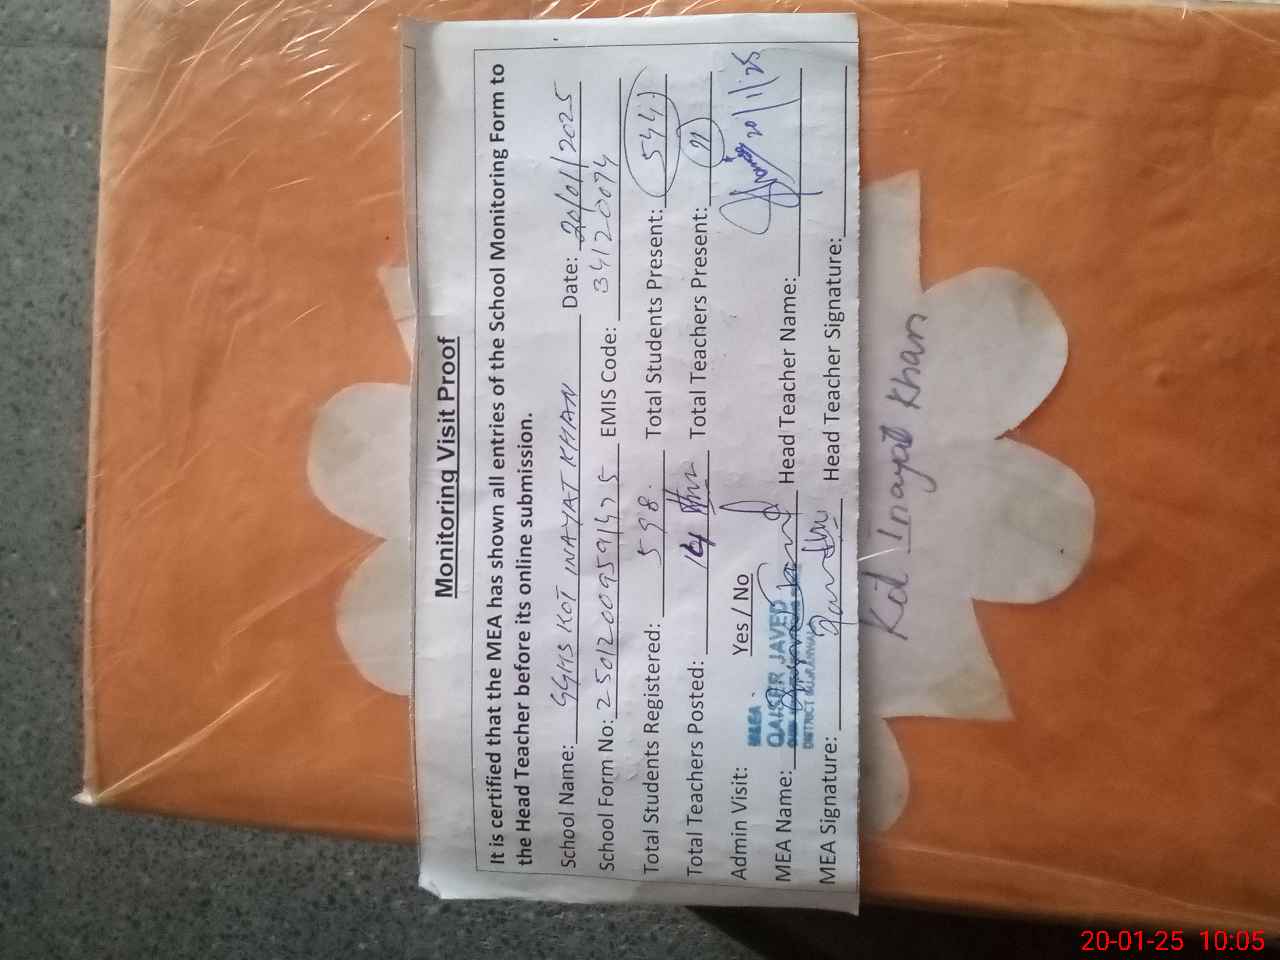 Monitoring Visit Proof
It is certified that the MEA has shown all entries of the School Monitoring Form to
the Head Teacher before its online submission.
School Name: GGHS KOT INAYAT KHAN Date: 20/01/2025
School Form No: EMIS Code: 34120074
Total Students Registered: 598. Total Students Present: 544
Total Teachers Posted: 14 Total Teachers Present: 11
Admin Visit: Yes / No 20/1/25
MEA
MEA Name: QAISER JAVED Head Teacher Name:
DISTRICT GUJRANWALA
MEA Signature: Head Teacher Signature:
Kot Inayat Khan
20-01-25 10:05